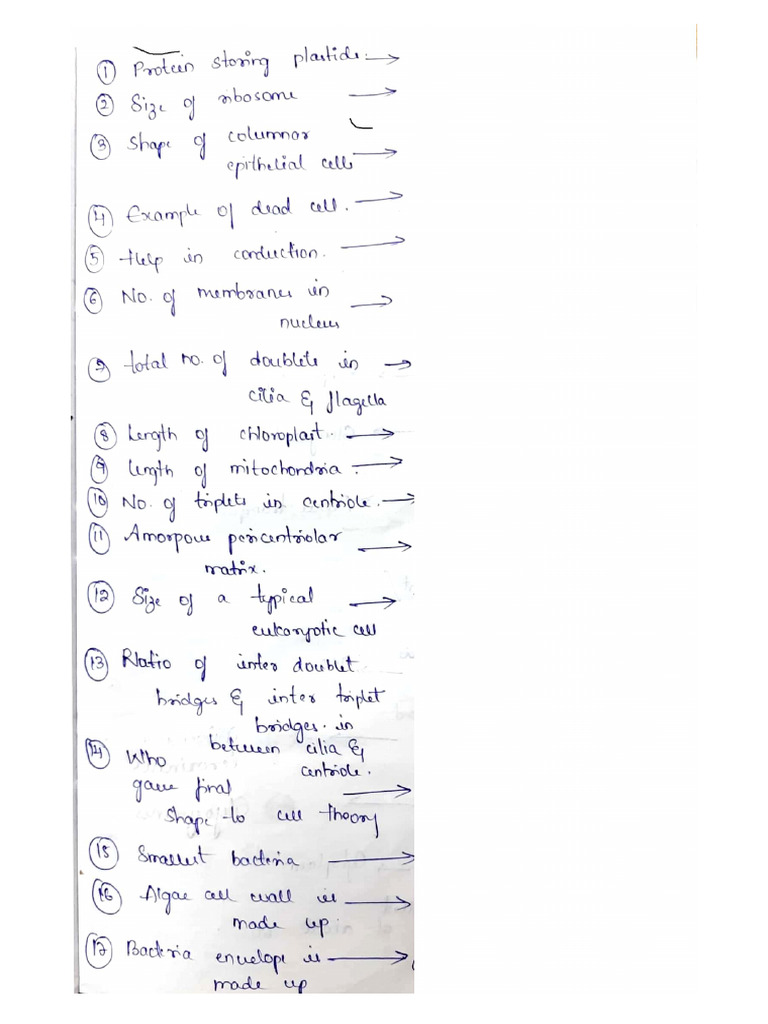 ① Protein storing plastids. →
② Size of ribosome →
③ Shape of columnar →
epithelial cells
④ Example of dead cell. →
⑤ Help in conduction. →
⑥ No. of membranes in →
nucleus
⑦ total no. of doublets in →
cilia & flagella
⑧ Length of chloroplast. →
⑨ length of mitochondria. →
⑩ No. of triplets in centriole. →
⑪ Amorpous pericentriolar →
matrix.
⑫ Size of a typical →
eukaryotic cell
⑬ Ratio of inter doublet
bridges & inter triplet
bridges. in
between cilia &
centriole.
⑭ Who
gave final →
shape to cell theory
⑮ Smallest bacteria →
⑯ Algae cell wall is →
made up.
⑰ Bacteria envelope is →
made up